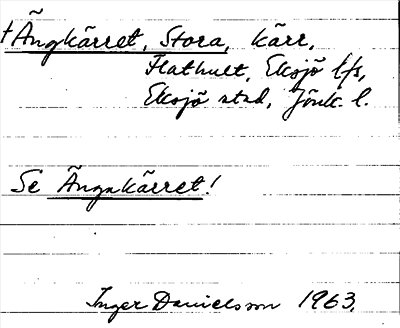 †Ängkärret, Stora, kärr,
Flathult, Eksjö lfs,
Eksjö stad, Jönk. l.
Se Ängakärret!
Inger Danielsson 1963.